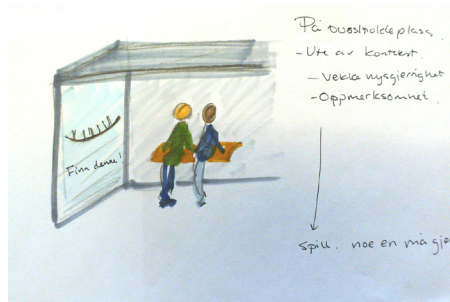 På bussholdeplass
- Ute av kontekst
- Vekke nysgjerrighet
- Oppmerksomhet
Finn denne!
Spill. noe en må